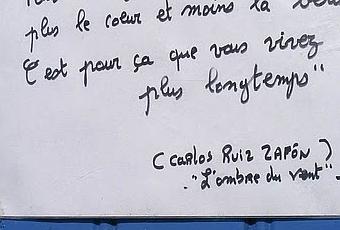 plus le cœur et moins la
C'est pour ça que vous vivez
plus longtemps"
(CARLOS RUIZ ZAFÓN)
-"L'ombre du vent"-